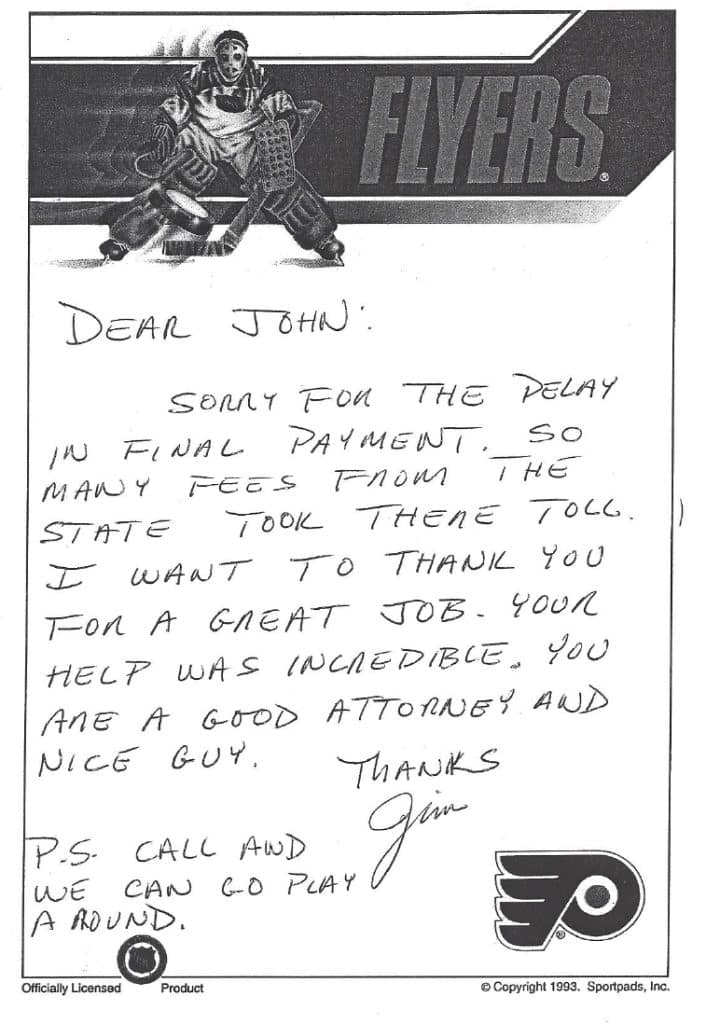 FLYERS®
DEAR JOHN:
SORRY FOR THE DELAY
IN FINAL PAYMENT. SO
MANY FEES FROM THE
STATE TOOK THERE TOLL.
I WANT TO THANK YOU
FOR A GREAT JOB. YOUR
HELP WAS INCREDIBLE. YOU
ARE A GOOD ATTORNEY AND
NICE GUY.
THANKS
Jim
P.S. CALL AND
WE CAN GO PLAY
A ROUND.
Officially Licensed Product
© Copyright 1993. Sportpads, Inc.